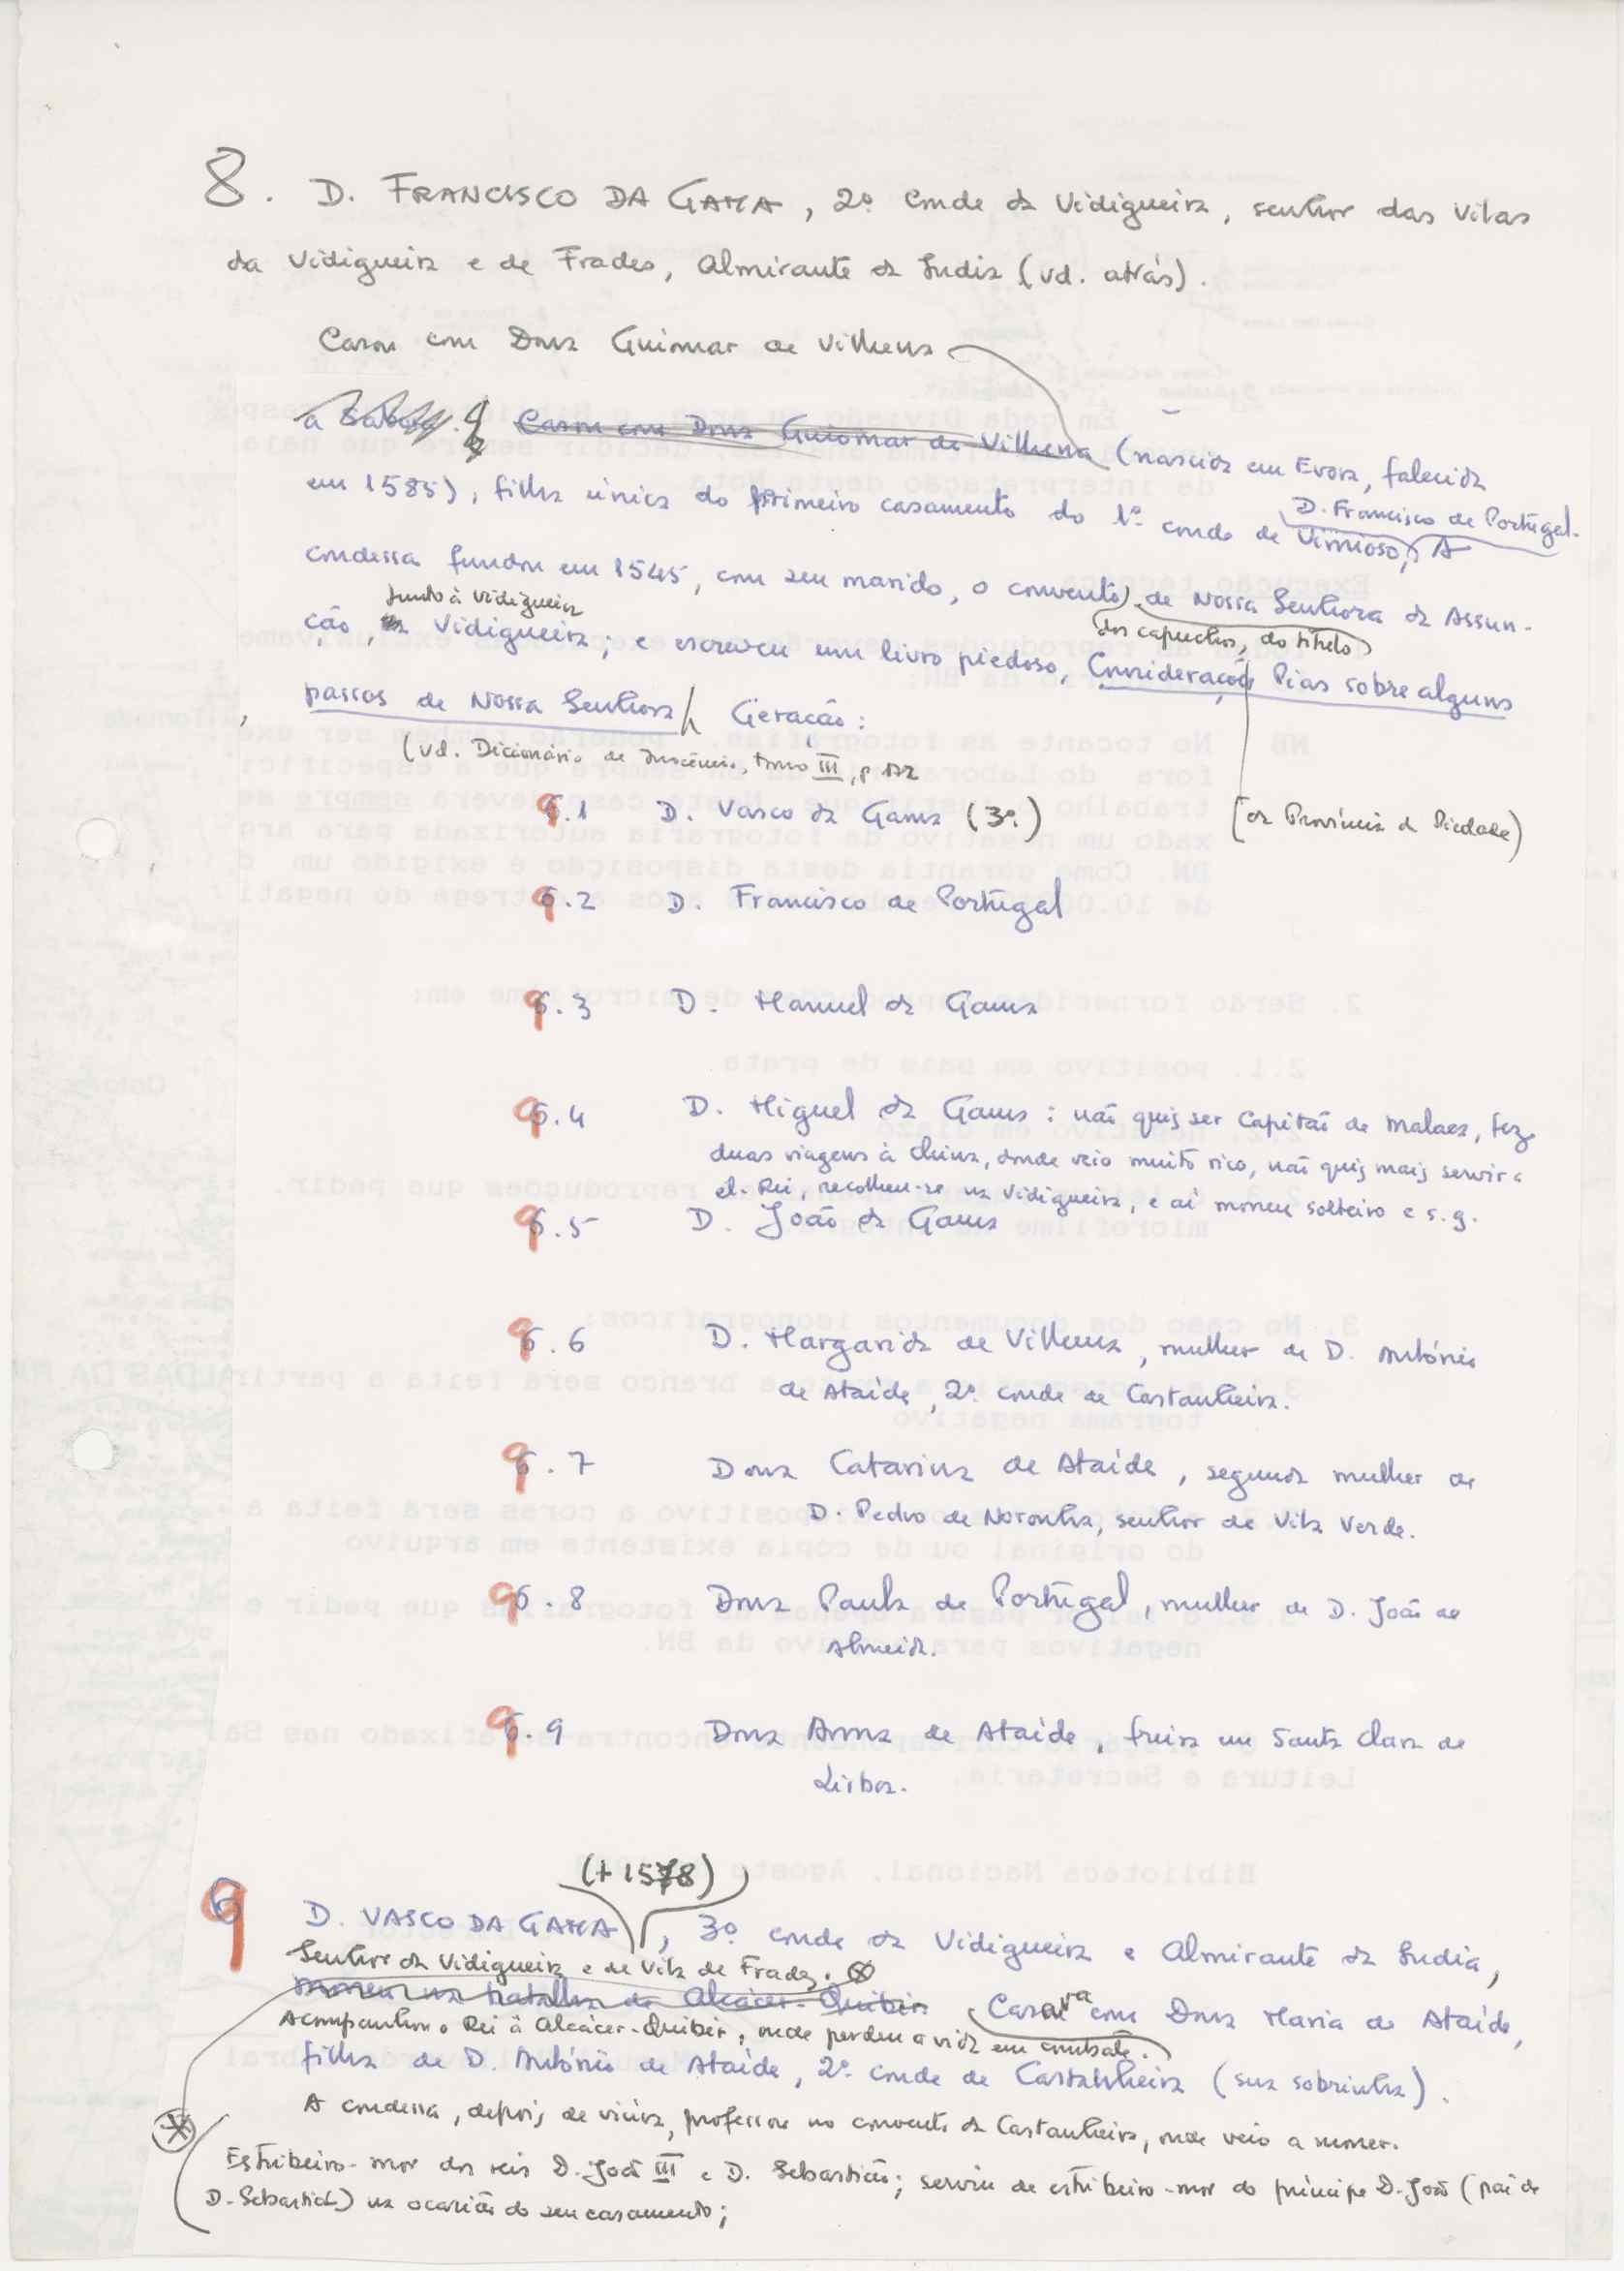 8. D. FRANCISCO DA GAMA, 2º conde da Vidigueira, senhor das Vilas
da Vidigueira e de Frades, Almirante da Índia (vd. atrás).
Casou com Dona Guiomar de Vilhena
Casou com Dona Guiomar de Vilhena (nascida em Evora, falecida
em 1585), filha única do primeiro casamento do 1º conde de Vimioso, D. Francisco de Portugal. A
condessa fundou em 1545, com seu marido, o convento de Nossa Senhora da Assun-
dos capuchos, do título
(da Província da Piedade)
junto à Vidigueira
ção, Vidigueira; e escreveu um livro piedoso, Considerações Pias sobre alguns
passos de Nossa Senhora. Geração:
(vd. Dicionário de Inocêncio, tomo III, p.
9.1 D. Vasco da Gama (3º)
9.2 D. Francisco de Portugal
9.3 D. Manuel da Gama
9.4 D. Miguel da Gama: não quis ser Capitão de Malaca, fez
duas viagens à China, donde veio muito rico, não quis mais servir a
el-Rei, recolheu-se na Vidigueira, e aí morreu solteiro e s.g.
9.5 D. João da Gama
9.6 D. Margarida de Vilhena, mulher de D. António
de Ataíde, 2º conde de Castanheira.
9.7 Dona Catarina de Ataíde, segunda mulher de
D. Pedro de Noronha, senhor de Vila Verde.
9.8 Dona Paula de Portugal, mulher de D. João de
Almeida.
9.9 Dona Anna de Ataíde, freira em Santa Clara de
Lisboa.
(+ 1578)
9 D. VASCO DA GAMA, 3º conde da Vidigueira e Almirante da Índia,
Senhor da Vidigueira e de Vila de Frades.
morreu na batalha de Alcácer-Quibir. Casara com Dona Maria de Ataíde,
Acompanhou o Rei a Alcácer-Quibir, onde perdeu a vida em combate.
filha de D. António de Ataíde, 2º conde de Castanheira (sua sobrinha).
A condessa, depois de viúva, professou no convento da Castanheira, onde veio a morrer.
Estribeiro-mor dos reis D. João III e D. Sebastião; serviu de estribeiro-mor do príncipe D. João (pai de
D. Sebastião) na ocasião do seu casamento;